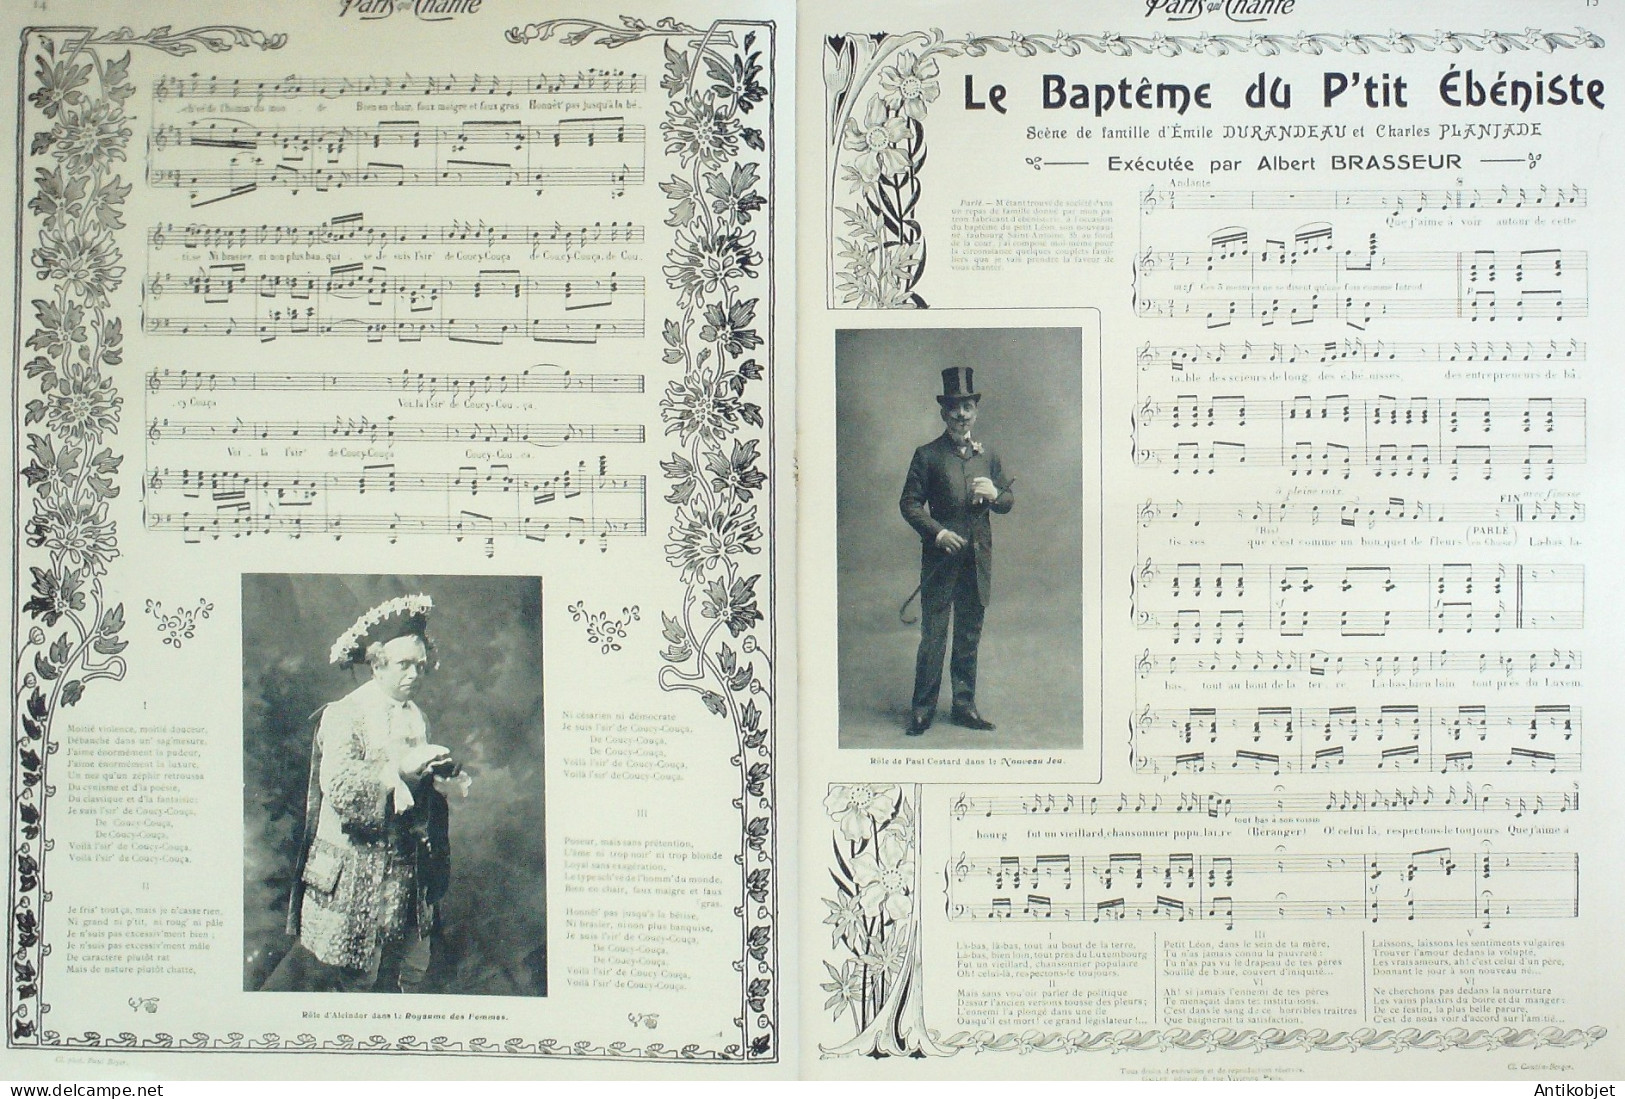 14
Paris qui Chante
Bien en chair, faux maigre et faux gras. Honnêt' pas jusqu'à la bê.
ti.se Ni brasier, ni non plus ban.qui . se Je suis l'sir' de Coucy-Couça de Coucy-Couça, de Cou.
cy Couça Voi.la l'sir' de Coucy-Cou . ça.
Voi . la l'sir' de Coucy-Couça Coucy-Cou . ça.
I
Moitié violence, moitié douceur,
Débauche dans un' sag'mesure,
J'aime énormément la pudeur,
J'aime énormément la luxure,
Un nez qu'un zéphir retroussa
Du cynisme et d'la poésie,
Du classique et d'la fantaisie:
Je suis l'sir' de Coucy-Couça,
De Coucy-Couça,
De Coucy-Couça,
Voilà l'sir' de Coucy-Couça.
Voilà l'sir' de Coucy-Couça.
II
Je fris' tout ça, mais je n'casse rien,
Ni grand ni p'tit, ni roug' ni pâle
Je n'suis pas excessiv'ment bien ;
Je n'suis pas excessiv'ment mâle
De caractère plutôt rat
Mais de nature plutôt chatte,
Ni césarien ni démocrate
Je suis l'sir' de Coucy-Couça,
De Coucy-Couça,
De Coucy-Couça,
Voilà l'sir' de Coucy-Couça,
Voilà l'sir' de Coucy-Couça.
III
Poseur, mais sans prétention,
L'âme ni trop noir' ni trop blonde
Loyal sans exagération,
Le type ach'vé de l'homm' du monde,
Bien en chair, faux maigre et faux
[gras.
Honnêt' pas jusqu'à la bêtise,
Ni brasier, ni non plus banquise,
Je suis l'sir' de Coucy-Couça,
De Coucy-Couça,
De Coucy-Couça,
Voilà l'sir' de Coucy-Couça,
Voilà l'sir' de Coucy-Couça.
Rôle d'Alcindor dans le Royaume des Femmes.
Cl. phot. Paul Boyer.
Paris qui Chante
15
Le Baptême du P'tit Ébéniste
Scène de famille d'Émile DURANDEAU et Charles PLANTADE
Exécutée par Albert BRASSEUR
Parlé. — M'étant trouvé de société dans
un repas de famille donné par mon pa-
tron fabricant d'ébénisterie, à l'occasion
du baptême du petit Léon, son nouveau-
né, faubourg Saint-Antoine, 8b, au fond
de la cour, j'ai composé moi-même pour
la circonstance quelques couplets fami-
liers que je vais prendre la faveur de
vous chanter.
Andante
Que j'aime à voir autour de cette
mf Ces 3 mesures ne se disent qu'une fois comme Introd.
p
ta.ble des scieurs de long, des é.bé.nisses, des entrepreneurs de bâ.
à pleine voix. FIN avec finesse
tis . ses (Bis) que c'est comme un bou.quet de fleurs (PARLE) Là-bas, là-
bas, tout au bout de la ter . re Là-bas, bien loin tout près du Luxem.
tout bas à son voisin
bourg fut un vieillard, chansonnier popu.lai.re (Béranger) O! celui là, respectons-le toujours. Que j'aime à
Rôle de Paul Costard dans le Nouveau Jeu.
I
Là-bas, là-bas, tout au bout de la terre,
Là-bas, bien loin, tout près du Luxembourg
Fut un vieillard, chansonnier populaire
Oh! celui-là, respectons-le toujours.
II
Mais sans vouloir parler de politique
Dessur l'ancien versons tousse des pleurs ;
L'ennemi l'a plongé dans une île
Ousqu'il est mort! ce grand législateur !...
III
Petit Léon, dans le sein de ta mère,
Tu n'as jamais connu la pauvreté :
Tu n'as pas vu le drapeau de tes pères
Souillé de boue, couvert d'iniquité...
VI
Ah! si jamais l'ennemi de tes pères
Te menaçait dans tes institutions,
C'est dans le sang de ce horribles traîtres
Que baignerait ta satisfaction.
V
Laissons, laissons les sentiments vulgaires
Trouver l'amour dedans la volupté,
Les vrais amours, ah! c'est celui d'un père,
Donnant le jour à son nouveau né...
VI
Ne cherchons pas dedans la nourriture
Les vains plaisirs du boire et du manger :
De ce festin, la plus belle parure,
C'est de nous voir d'accord sur l'amitié...
Tous droits d'exécution et de reproduction réservés.
GALLET éditeur, 6, rue Vivienne, Paris.
Cl. Cautin-Berger.
Antikobjet